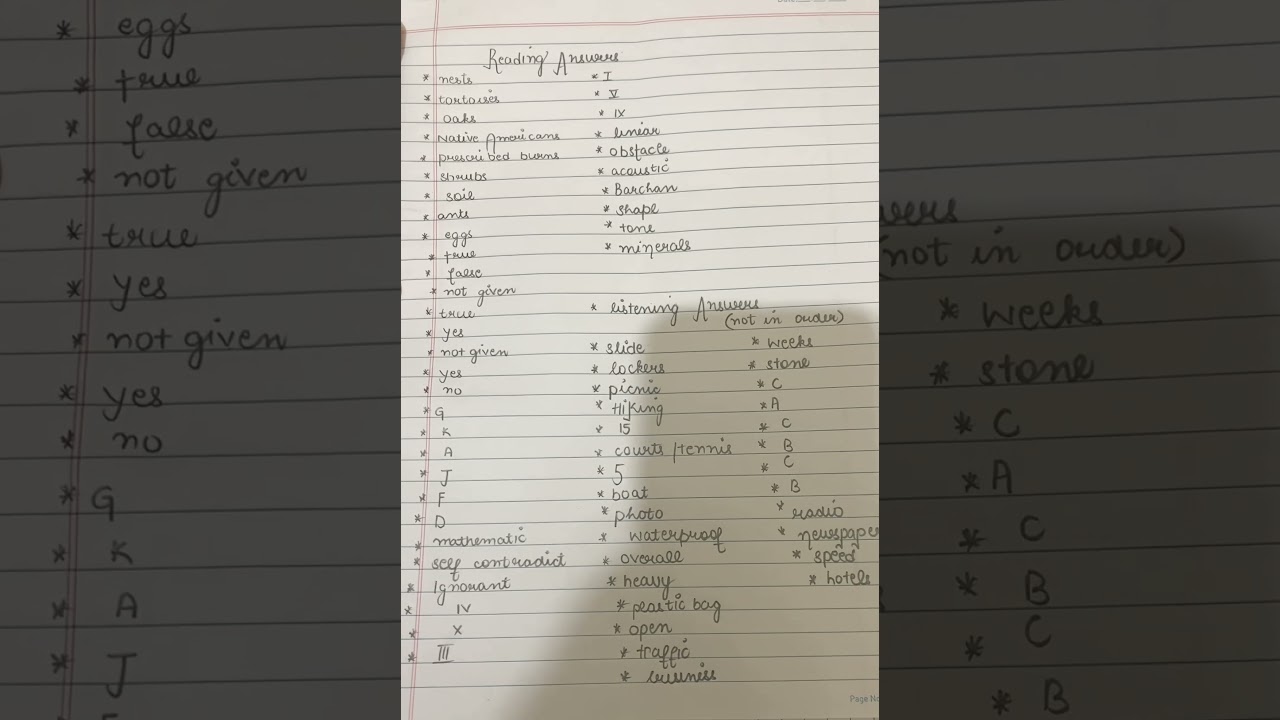 Reading Answers
* nests
* tortoises
* oaks
* Native Americans
* prescribed burns
* shrubs
* soil
* ants
* eggs
* true
* false
* not given
* true
* yes
* not given
* yes
* no
* G
* K
* A
* J
* F
* D
* mathematic
* self contradict
* Ignorant
* IV
* X
* III
* I
* V
* IX
* linear
* obstacle
* acoustic
* Barchan
* shape
* tone
* minerals
* listening Answers
(not in order)
* slide
* lockers
* picnic
* Hiking
* 15
* courts/tennis
* 5
* boat
* photo
* waterproof
* overall
* heavy
* plastic bag
* open
* traffic
* business
* weeks
* stone
* C
* A
* C
* B
* C
* B
* radio
* newspaper
* speed
* hotels
Page No
* eggs
* true
* false
* not given
* true
* yes
* not given
* yes
* no
* G
* K
* A
* J
wers
(not in order)
* weeks
* stone
* C
* A
* C
* B
* C
* B